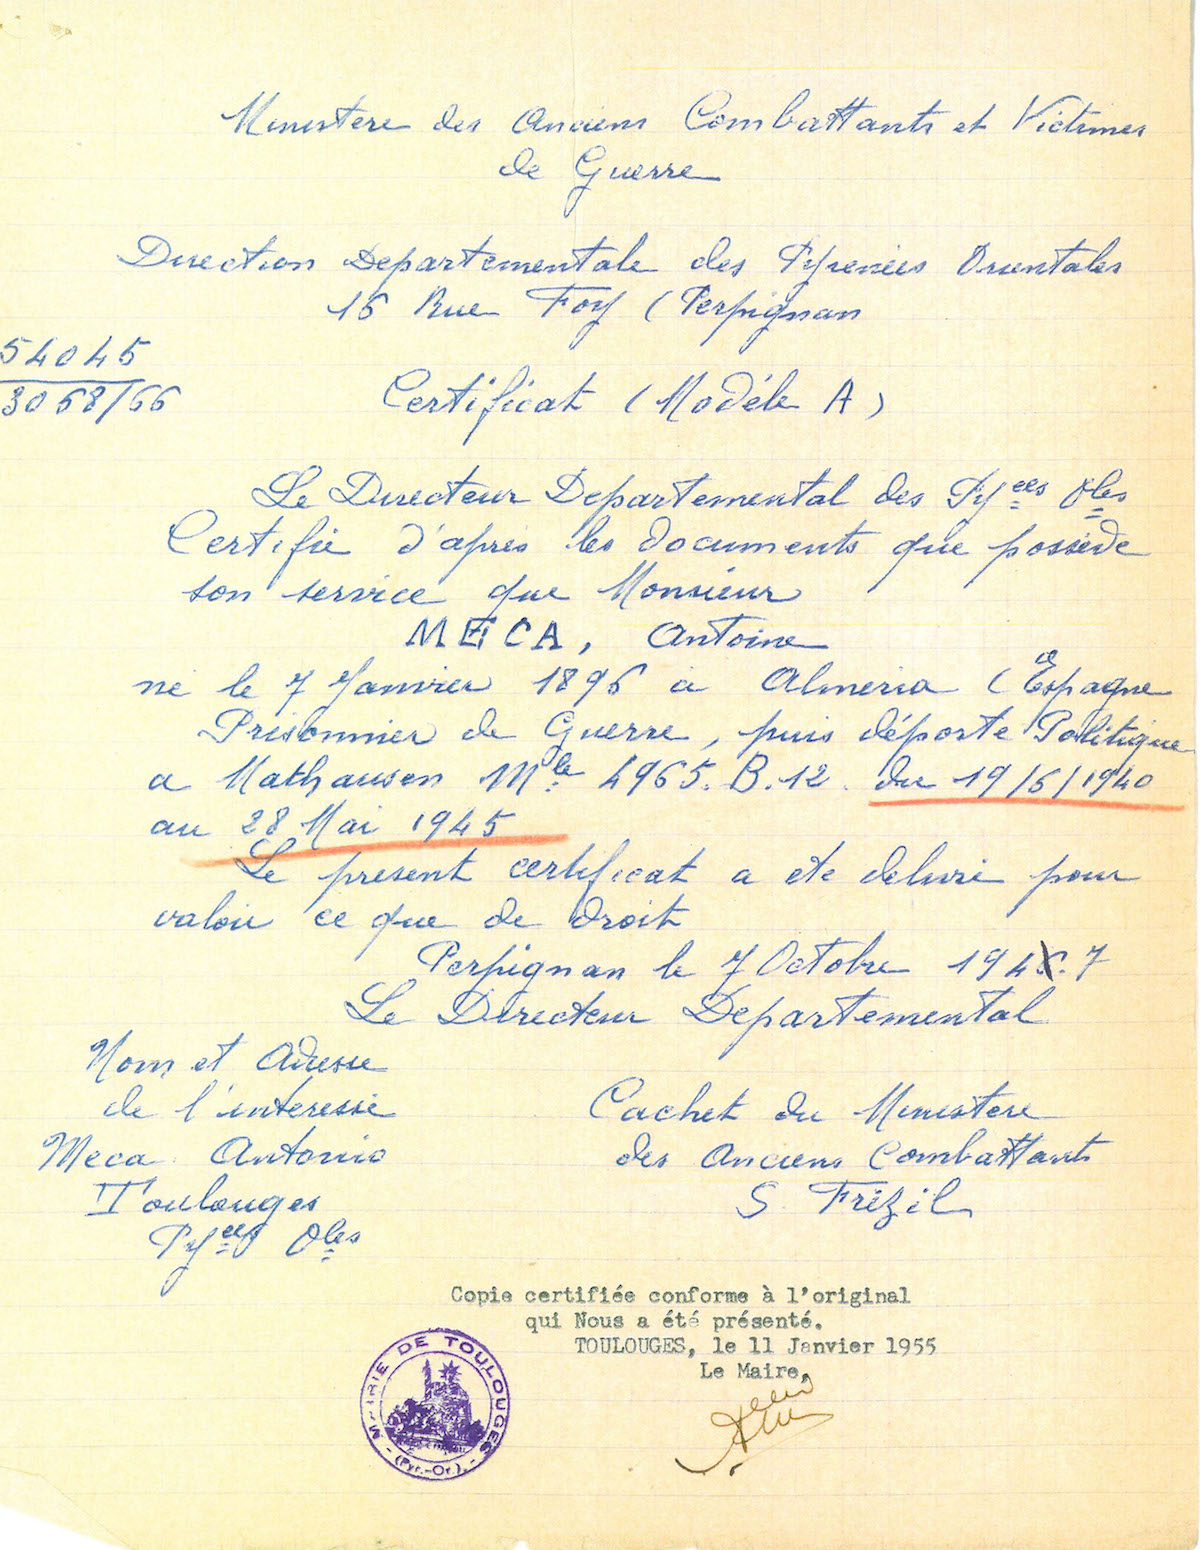 Ministere des Anciens Combattants et Victimes
de Guerre
Direction Departementale des Pyrenées Orientales
16 Rue Foy (Perpignan
54045
3068/66
Certificat (Modéle A)
Le Directeur Departemental des Pyées Oles
Certifie d'aprés les documents que posséde
son service que Monsieur
MECA, Antoine
né le 7 Janvier 1896 a Almeria (Espagne
Prisonnier de Guerre, puis déporte Politique
a Mathausen Mle 4965.B.12. du 19/6/1940
au 28 Mai 1945
Le present certificat a ete delivré pour
valoir ce que de droit
Perpignan le 7 Octobre 194 7
Le Directeur Departemental
Nom et Adresse
de l'interessé
Meca Antonio
Toulouges
Pyées Oles
Cachet du Ministere
des Anciens Combattants
S. Frézil
Copie certifiée conforme à l'original
qui Nous a été présenté.
TOULOUGES, le 11 Janvier 1955
Le Maire,
MAIRIE DE TOULOUGES
(Pyr.-Or.)